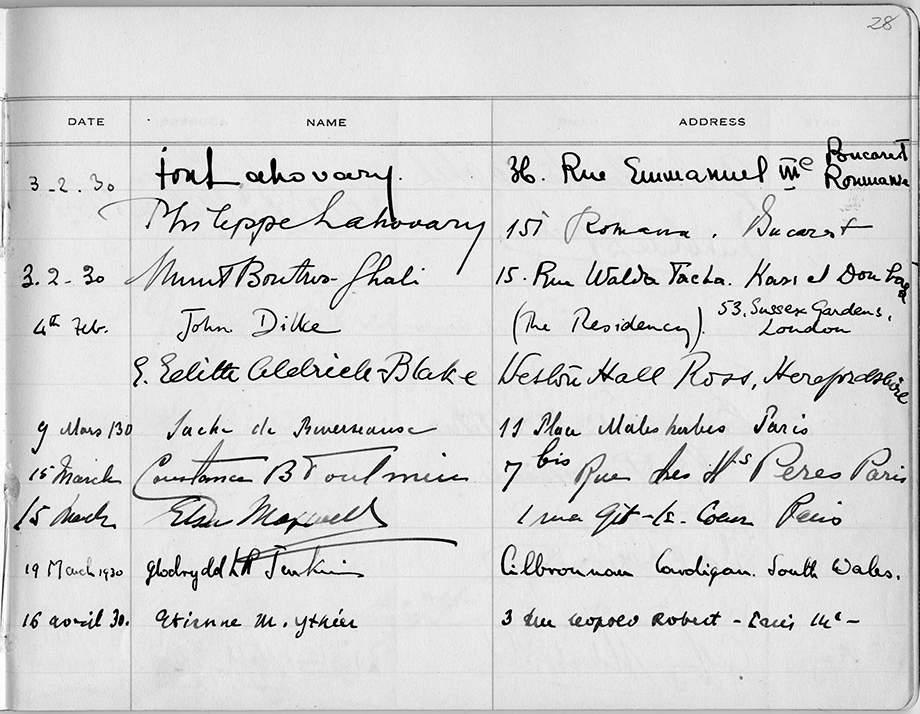 28
DATE NAME ADDRESS
3-2.30 Lahovary. 36. Rue Emmanuel IIIe Bucarest Roumanie
Philippe Lahovary 15 Romana. Bucarest
3.2-30 Boutros-Ghali 15. Rue Walda Pacha. Kasr el Doubara
4th Feb. John Dilke (The Residency). 53, Sussex Gardens, London
E. Edith Aldrich-Blake Weston Hall Ross, Herefordshire
9 Mars 130 de 11 Place Malesherbes Paris
15 March Constance B Toulmin 7 bis Rue des Sts Peres Paris
15 March Elsa Maxwell 1 rue Gît-le-Coeur Paris
19 March 1930 Jenkins Cilbronnau Cardigan. South Wales.
16 avril 30. Etienne M. 3 rue Leopold Robert - Paris